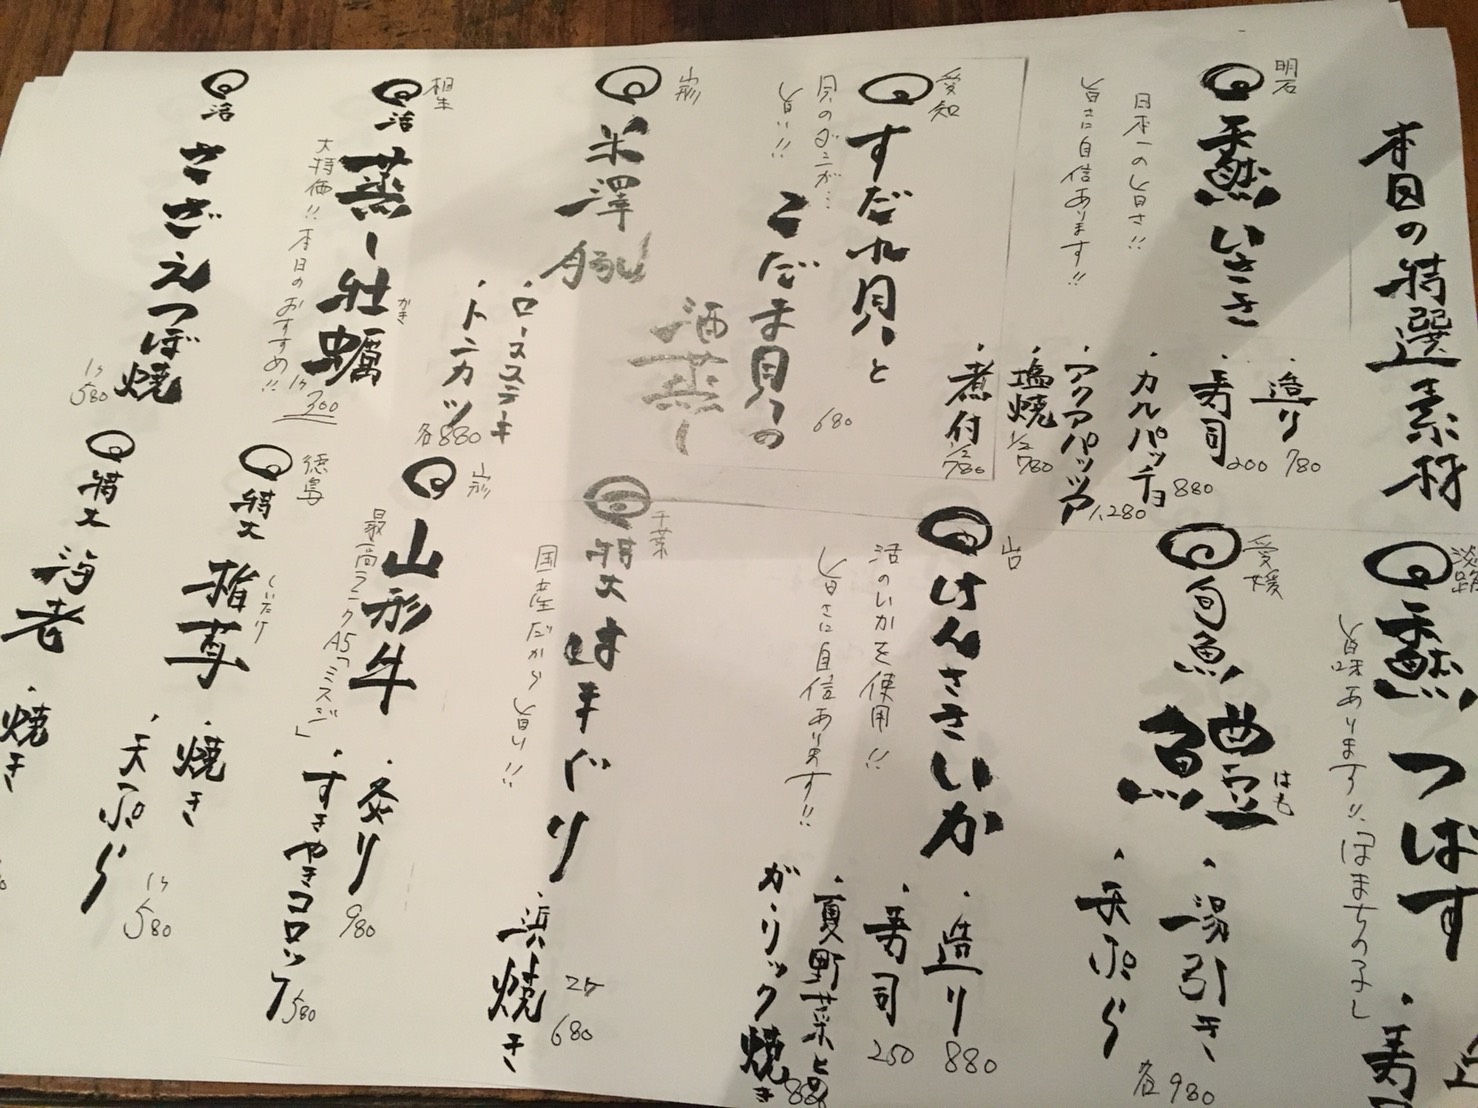 本日の特選素材
明石
天然いさき
日本一の旨さ!!
旨さに自信あります!!
・造り 780
・寿司 200
・カルパッチョ 880
・アクアパッツァ 1,280
・塩焼 1/2 780
・煮付 1/2 780
淡路
天然つばす
旨味あります!!「はまちの子」
・寿
愛媛
旬魚 鱧
はも
・湯引き
・天ぷら
各980
愛知
すだれ貝と
こだま貝の
酒蒸し
680
貝のダシが…
旨い!!
山口
けんさきいか
活のいかを使用!!
旨さに自信あります!!
・造り 880
・寿司 250
・夏野菜との
ガーリック焼き 880
山形
米澤豚
・ロースステーキ
・トンカツ
各880
千葉
特大はまぐり
国産だから旨い!!
・浜焼き
2ケ 680
相生
活 蒸し牡蠣
かき
大特価!!本日のおすすめ!!
1ケ 300
山形
山形牛
最高ランクA5「ミスジ」
・炙り 980
・すきやきコロッケ 580
活 さざえつぼ焼
1ケ 580
徳島
特大 椎茸
しいたけ
・焼き
・天ぷら
1ケ 580
特大 海老
・焼き